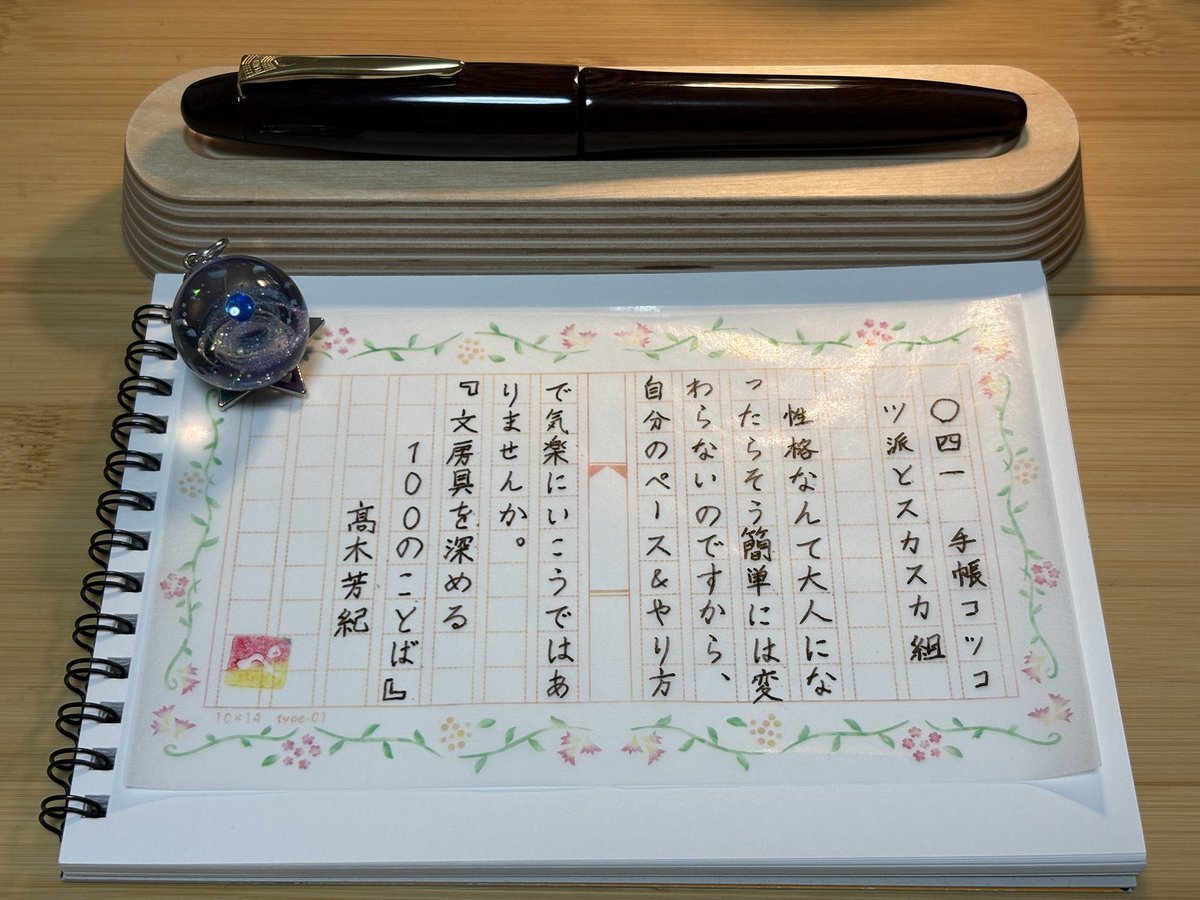 〇四一 手帳コツコ
ツ派とスカスカ組
性格なんて大人にな
ったらそう簡単には変
わらないのですから、
自分のペース&やり方
で気楽にいこうではあ
りませんか。
『文房具を深める
100のことば』
高木芳紀
10×14 type-01